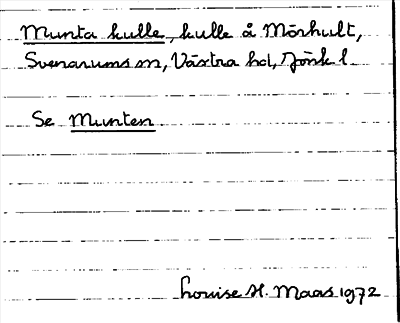 Munta kulle, kulle å Mörhult,
Svenarums sn, Västra hd, Jönk l.
Se Munten.
Louise H. Maas 1972